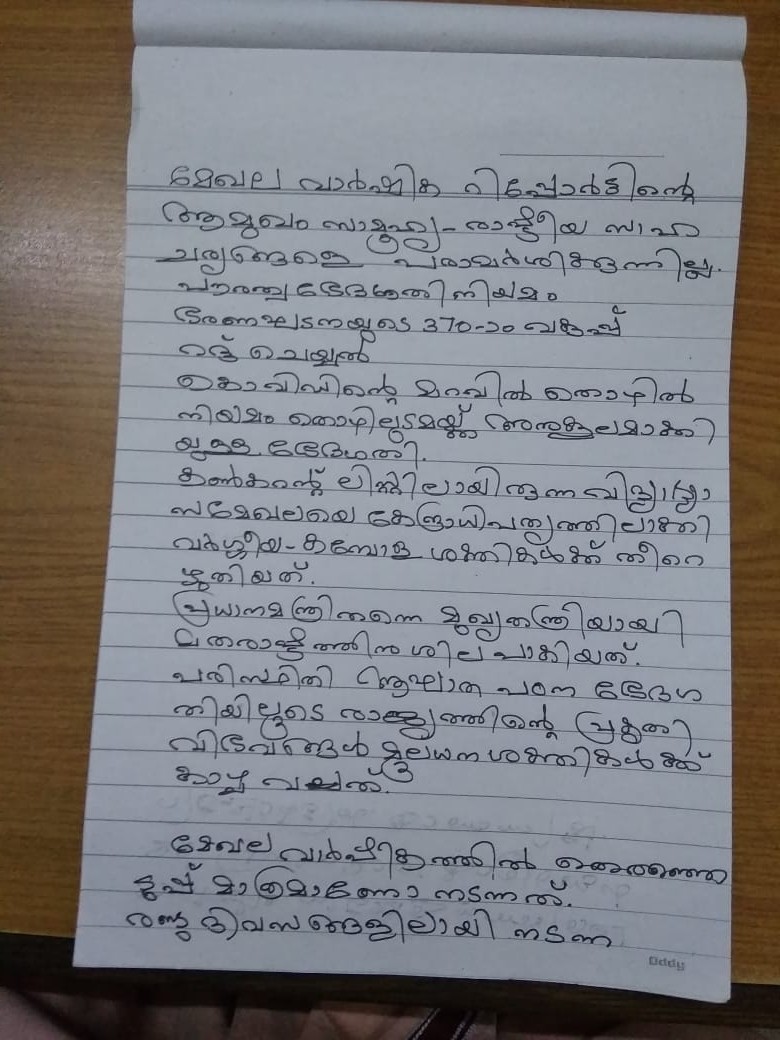 മേഖല വാർഷിക റിപ്പോർട്ടിന്റെ
ആമുഖം സാമൂഹ്യ-രാഷ്ട്രീയ സാഹ
ചര്യങ്ങളെ പരാമർശിക്കുന്നില്ല.
പൗരത്വ ഭേദഗതി നിയമം
ഭരണഘടനയുടെ 370-ാം വകുപ്പ്
റദ്ദ് ചെയ്യൽ
കൊവിഡിന്റെ മറവിൽ തൊഴിൽ
നിയമം തൊഴിലുടമയ്ക്ക് അനുകൂലമാക്കി
യുള്ള ഭേദഗതി.
കൺകറന്റ് ലിസ്റ്റിലായിരുന്ന വിദ്യാഭ്യാ
സമേഖലയെ കേന്ദ്രാധിപത്യത്തിലാക്കി
വർഗ്ഗീയ-കമ്പോള ശക്തികൾക്ക് തീറെ
ഴുതിയത്.
പ്രധാനമന്ത്രി തന്നെ മുഖ്യതന്ത്രിയായി
മതരാഷ്ട്രത്തിന് ശില പാകിയത്.
പരിസ്ഥിതി ആഘാത പഠന ഭേദഗ
തിയിലൂടെ രാജ്യത്തിന്റെ പ്രകൃതി
വിഭവങ്ങൾ മൂലധന ശക്തികൾക്ക്
കാഴ്ച വച്ചത്.
മേഖല വാർഷികത്തിൽ തെരഞ്ഞെ
ടുപ്പ് മാത്രമാണോ നടന്നത്.
രണ്ടു ദിവസങ്ങളിലായി നടന്ന
Oddy